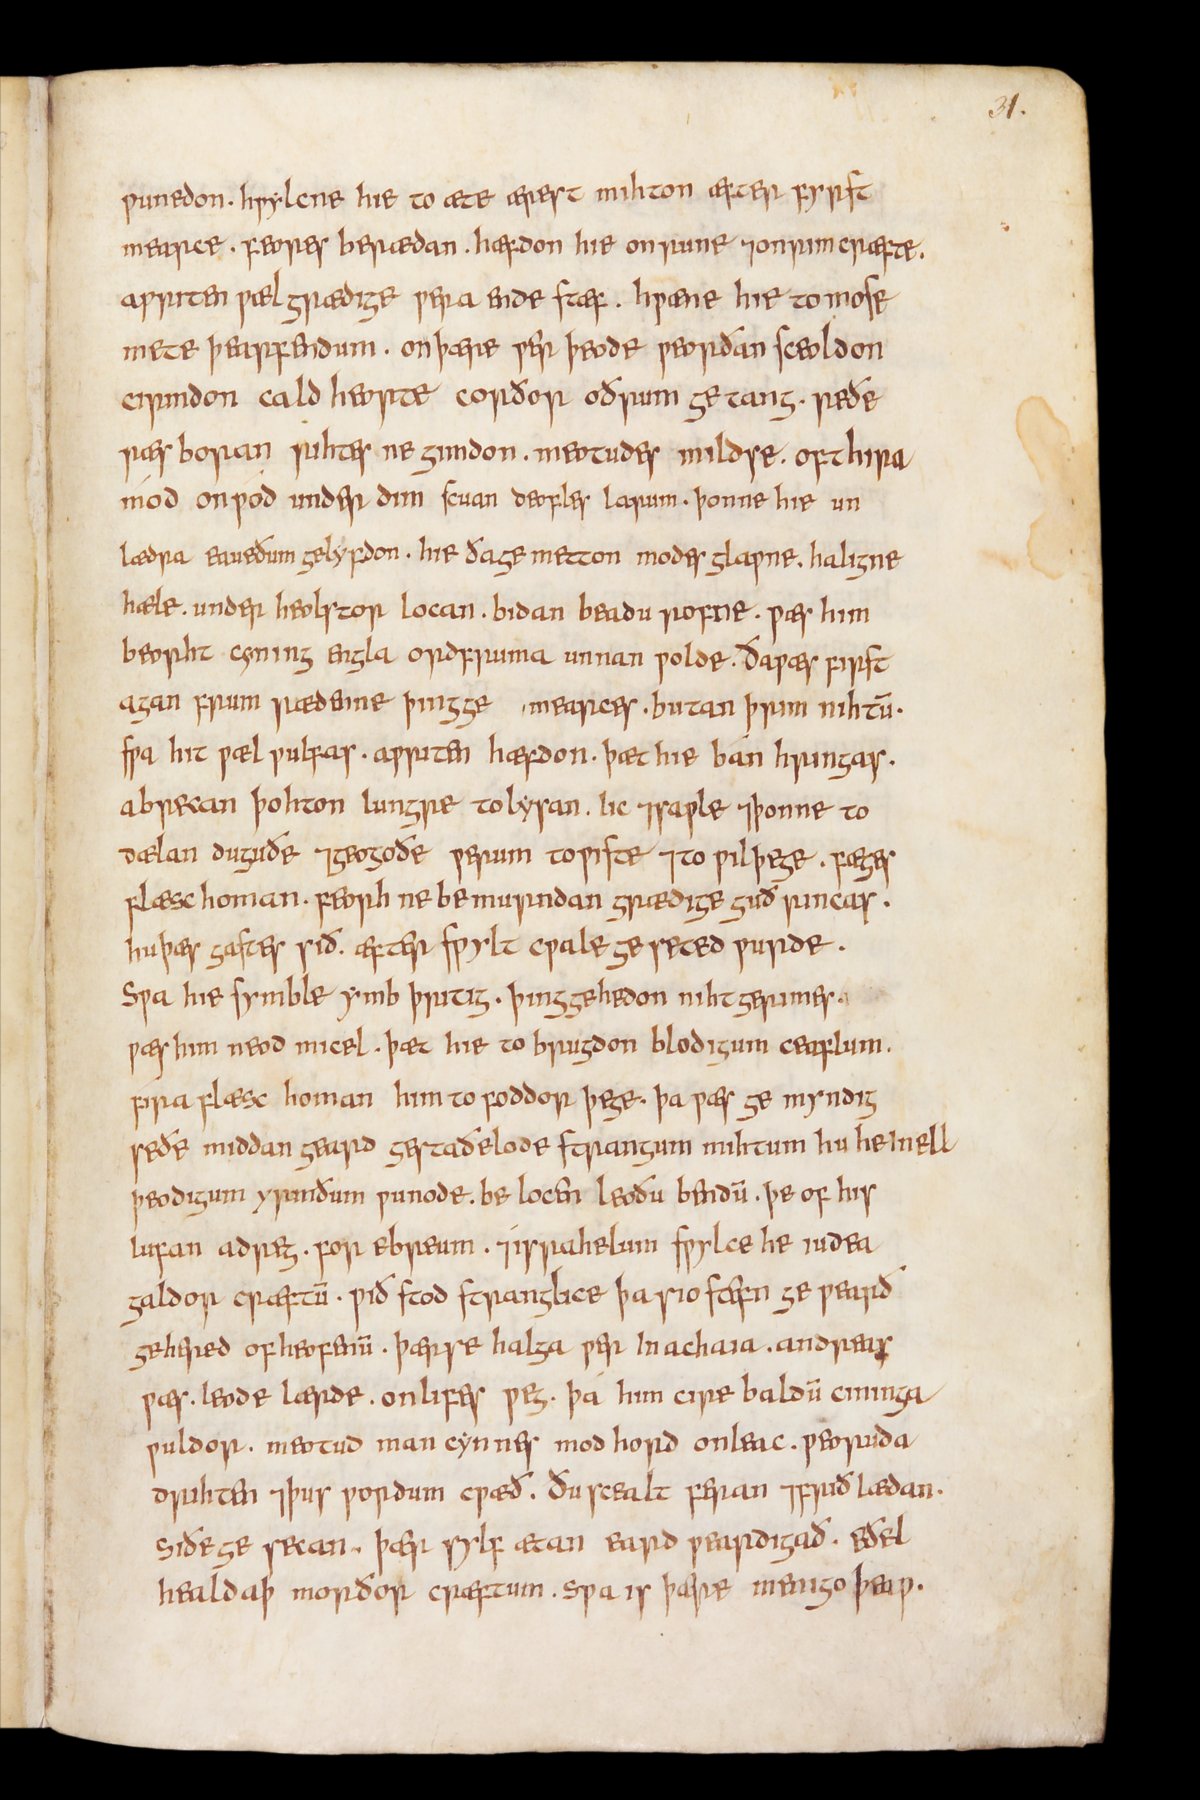 31.
ƿunedon. hƿylcne hie to æte ærest mihton æfter fyrst
mearce. feores berædan. hæfdon hie on rune ⁊on rimcræfte.
aƿriten ƿælgrædige ƿera ende stæf. hƿæne hie to mose
mete þearfendum. on þære ƿer þeode ƿeorðan sceoldon
cirmdon caldheorte corðor oðrum getang. reðe
ræs boran rihtes ne gimdon. meotudes mildse. oft hira
mód onƿód under dim scuan deofles larum. þonne hie un
lædra eaueðum gelýfdon. hie ða gemetton modes glaƿne. haligne
hæle. under heolstor locan. bidan beadurofne. ƿæs him
beorht cyning engla ordfruma unnan ƿolde. Ða ƿæs first
agan frumrædenne þinggemearces. butan þrim nihtū.
sƿa hit ƿæl ƿulfas. aƿriten hæfdon. þæt hie bán hringas.
abrecan þohton lungre tolysan. lic ⁊saƿle ⁊þonne to
dælan duguðe ⁊geogoðe ƿerum to ƿiste ⁊to ƿilþege. fæges
flæschoman. feorh ne bemurndan grædige guðrincas.
hu þæs gastes sið. æfter sƿylt cƿale geseted ƿurde.
Sƿa hie symble ymb þritig. þing gehedon nihtgerimes.
ƿæs him neod micel. þæt hie tobrugdon blodigum ceaflum.
fira flæschoman him to foddorþege. þa ƿæs gemyndig
seðe middangeard gestaðelode strangum mihtum hu he in ell
þeodigum yrmðum ƿunode. belocen leoðubendū. þe of his
lufan adreg. for ebreum. ⁊israhelum sƿylce he iudea
galdorcræftū. ƿiðstod stranglice þa sio stefn geƿearð
gehered of heofenū. þær se halga ƿer in achaia. andreas
ƿæs. leode lærde. on lifes ƿeg. þá him cirebaldū cininga
ƿuldor. meotud mancynnes modhord onleac. ƿeoruda
drihten ⁊þus ƿordum cƿæð. Ðu scealt feran ⁊frið lædan.
siðe gesecan. þær sylfætan eard ƿeardigað. eðel
healdaþ morðorcræftum. Sƿa is þære menigo þeaƿ.